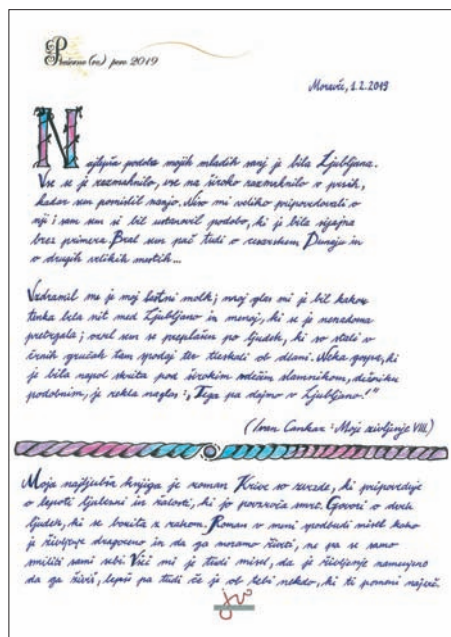 Piserno (va) pero 2019
Moravče, 1.2.2019
Najlepša podoba mojih mladih sanj je bila Ljubljana.
Vse se je razmahnilo, vse na široko razmahnilo v prsih,
kadar sem pomislil nanjo. Niso mi veliko pripovedovali o
nji i sam sem si bil ustvaril podobo, ki je bila sijajna
brez primere. Bral sem pač tudi o cesarskem Dunaju in
o drugih velikih mestih...
Vzdramil me je moj lastni molk; moj glas mi je bil kakor
tenka bela nit med Ljubljano in menoj, ki se je nenadoma
pretrgala; ozrl sem se preplašen po ljudeh, ki so stali v
črnih gručah tam spodaj ter tleskali ob dlani. Neka gospa, ki
je bila napol skrita pod širokim rdečim slamnikom, dežniku
podobnim, je rekla naglas: „Tega pa dajmo v Ljubljano!"
(Ivan Cankar: Moje življenje VIII.)
Moja najljubša knjiga je roman Krive so zvezde, ki pripoveduje
o lepoti ljubezni in žalosti, ki jo povzroča smrt. Govori o dveh
ljudeh, ki se borita z rakom. Roman v meni prebudi misel kako
je življenje dragoceno in da ga moramo živeti, ne pa se samo
smiliti sami sebi. Všeč mi je tudi misel, da je življenje namenjeno
da ga živiš, lepše pa tudi če je ob tebi nekdo, ki ti pomeni največ.